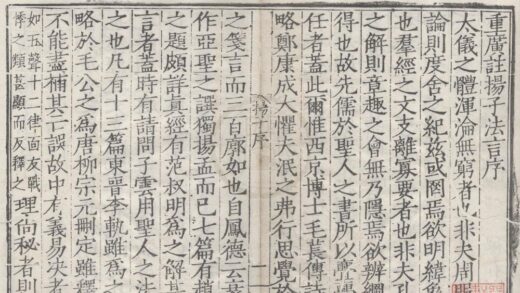 重廣註揚子法言序
大儀之體渾淪無窮者也非夫周
論則度舍之紀茲或罔焉欲明緯
也羣經之文支離寡要者也非夫孔
之解則章趣之會無乃隱焉欲辨綱
得也故先儒於聖人之書所以
任者蓋此爾惟西京博士毛萇傳詩
略鄭康成大懼夫泯之弗行思覺於
揚序
一
之箋言而三百廓如也自鳳德云衰
作亞聖之譔獨揚孟而已七篇有
之題頗詳真經有范叔明為之解
言者蓋時有請問子雲用聖人之法
之也凡有十三篇東晉李軌雖為之
略於毛公之為唐柳宗元刪定雖釋
不能盡補其亡誤故中有義易決者
如五聲十二律面友戰
悸之類甚顯而反釋之
理尚秘者則